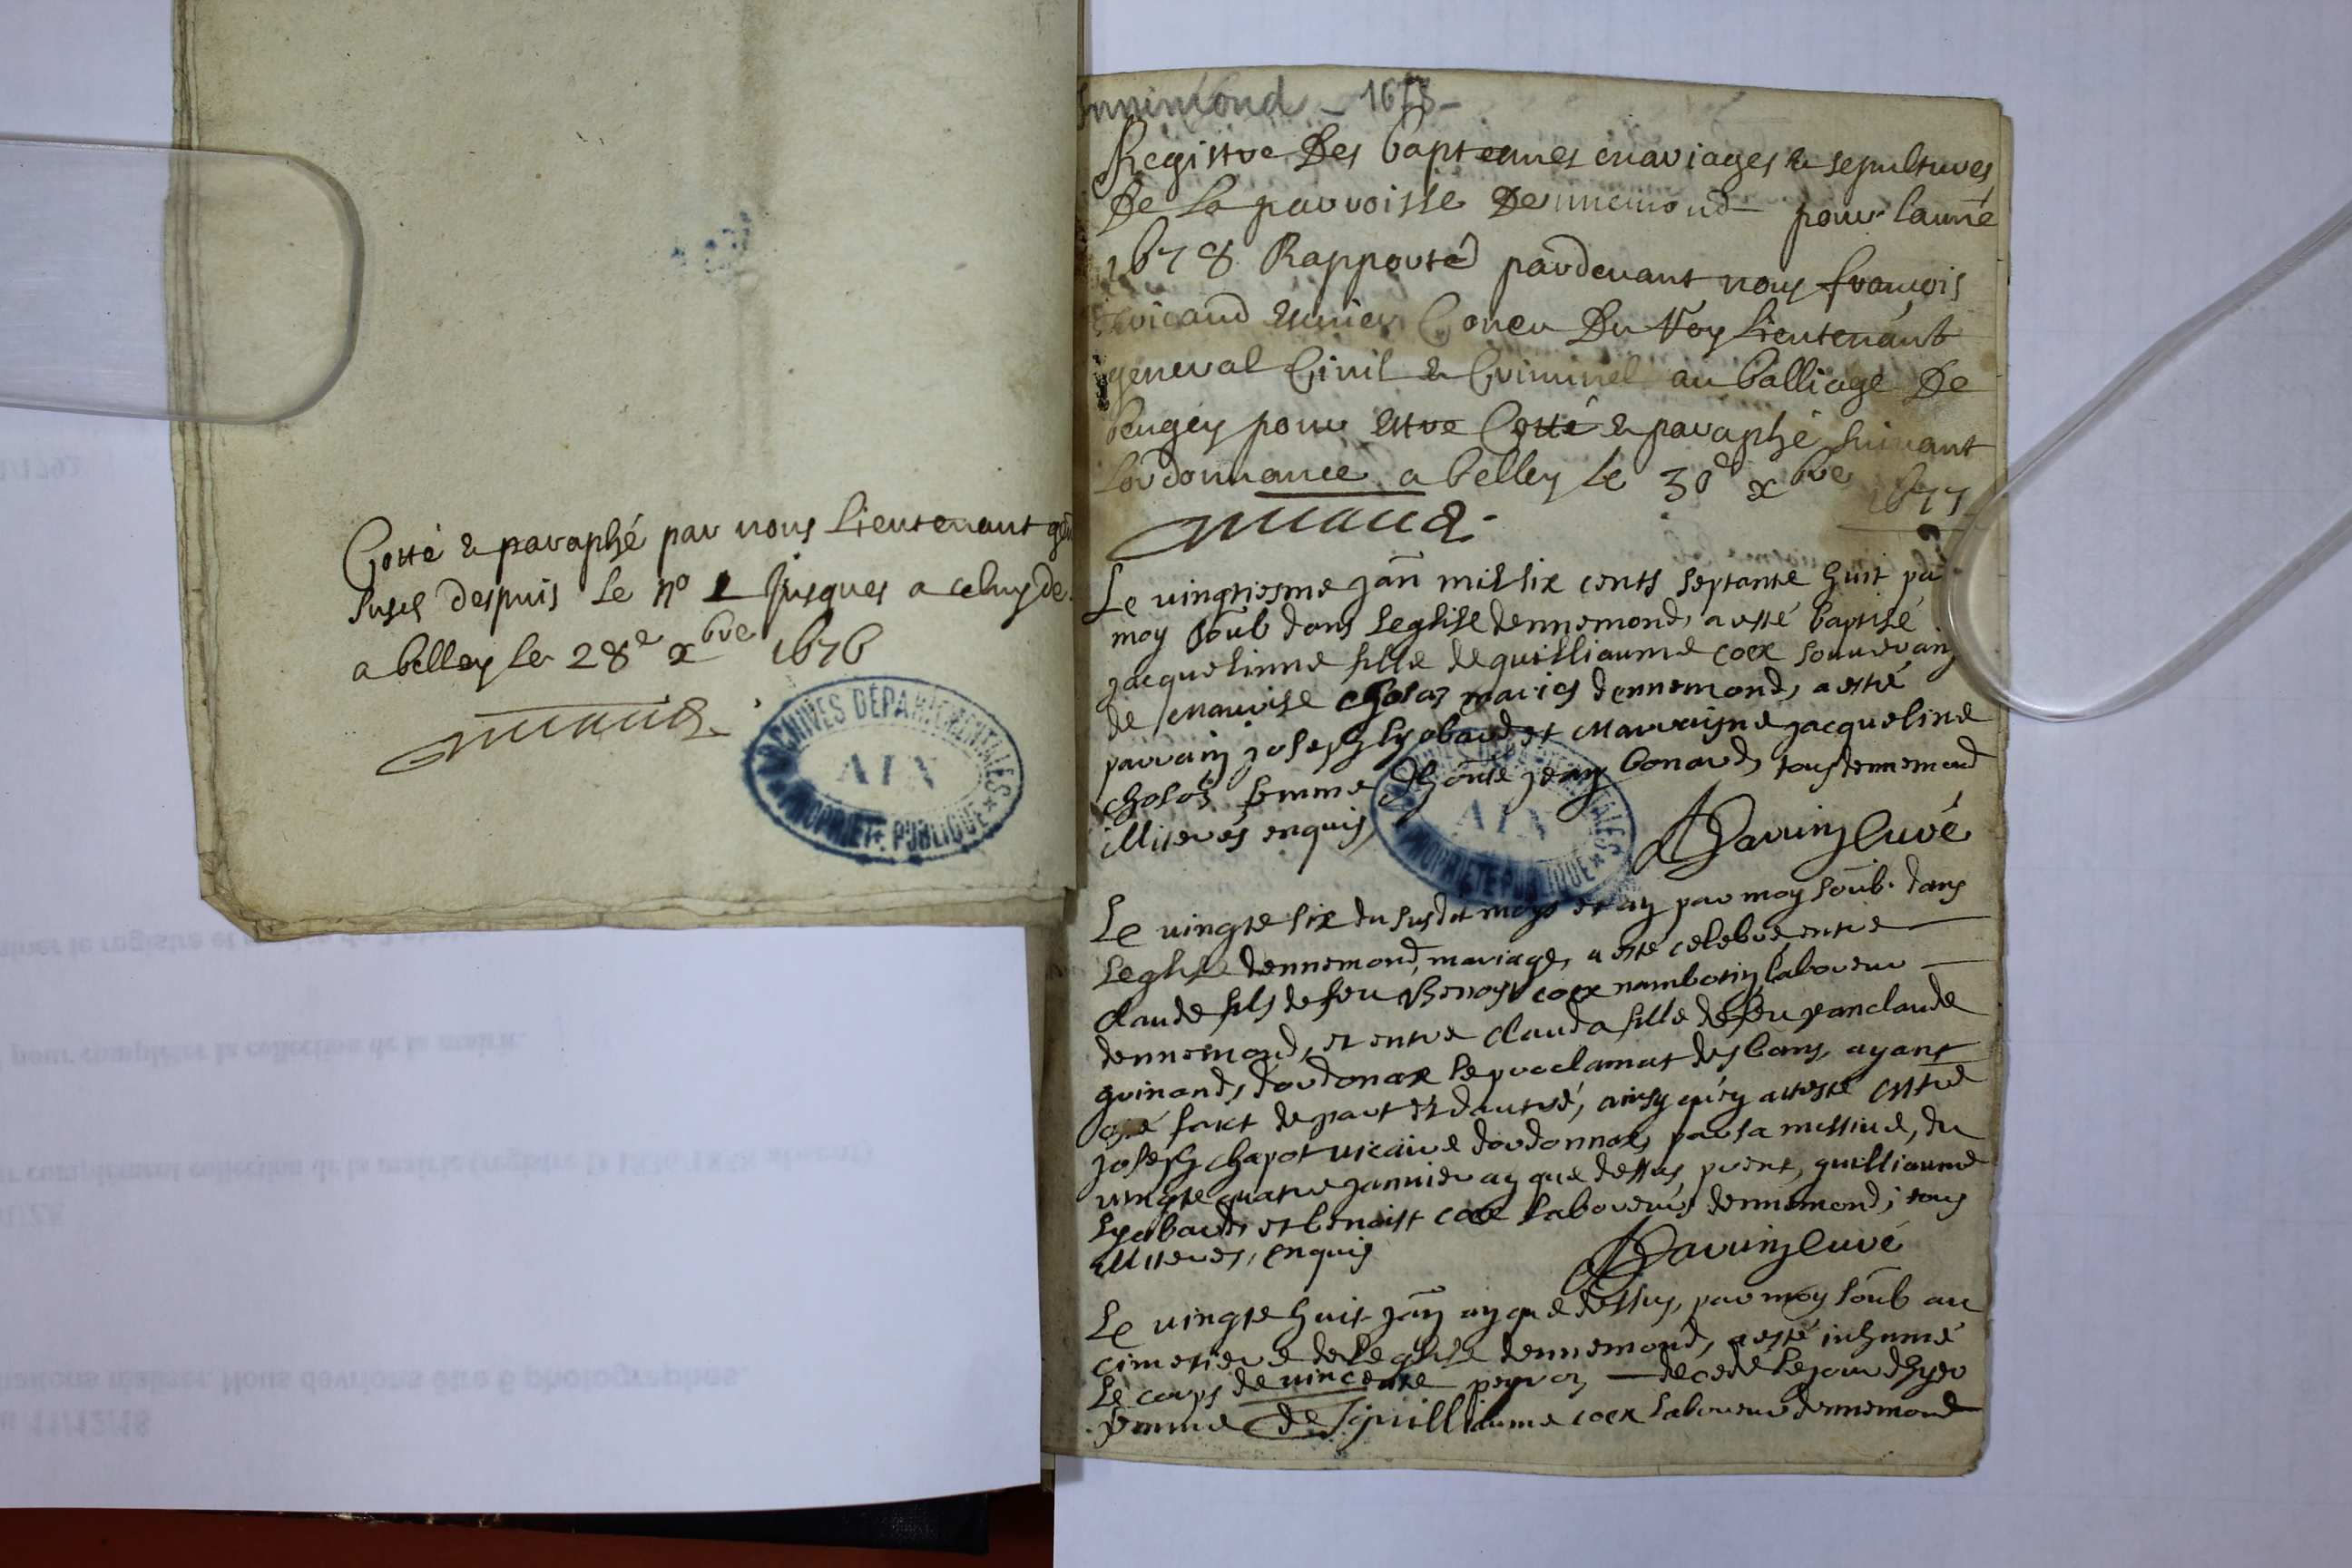 Cotté & paraphé par nous Lieutenant
susd despuis le n° 1 Jusques a celuy de
a belley le 28e xbre 1676
ARCHIVES DÉPARTEMENTALES
AIN
PROPRIÉTÉ PUBLIQUE
Innimond - 1678 -
Registre des baptesmes mariages & sepultures
De la parroisse dennemond pour lannè
1678 Rapporté pardevant nous françois
Escuier Coner Du Roy Lieutenant
general Civil & Criminel au balliage De
beugey pour Estre Cotté & paraphé suivant
Lordonnance a belley le 30e xbre 1677
Le vingtiesme jañ mil six cents septante huit par
moy soub dans leglise dennemond, a esté baptisé
jacquelinne fille de guilliaume coex
de choloz maries dennemond, a esté
parrain joseph lyobard et Marraigne jacqueline
choloz femme jean bonard, tous dennemond
illiterés enquis
ARCHIVES DÉPARTEMENTALES
AIN
PROPRIÉTÉ PUBLIQUE
curé
Le vingte six du susdit moys et an par moy soub. dans
leglise dennemond, mariage, a esté celebré, entre
claude fils de feu Benoyt coex laboreur
dennemond, et entre clauda fille de feu jean claude
guinand, dordonax le proclamat des bans, ayant
esté faict de part et dautre, ainsy qu'en atteste
joseph chapot vicaire dordonnax, par sa missive, du
vingte quatre janvier an que dessus, guilliaume
lyobard, et benoist coex laboreurs dennemond, tous
illiteres, enquis
curé
Le vingte huit jan an que dessus, par moy soub au
cimetiere de leglise dennemond, a esté inhumé
le corps de vincente decede le jour dhyer
femme de guilliaume coex laboreur dennemond